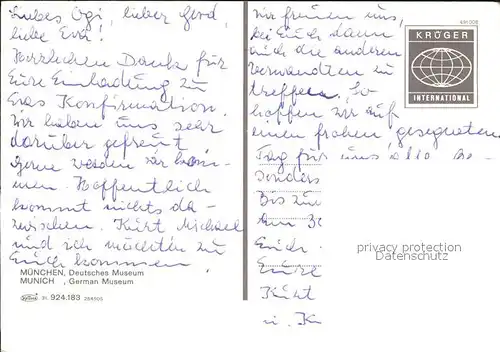 Liebes Ogi, lieber Gerd,
liebe Eva!
Herzlichen Dank für
Eure Einladung zu
Evas Konfirmation.
Wir haben uns sehr
darüber gefreut.
Gerne werden wir kom-
men. Hoffentlich
kommt nichts da-
zwischen. Kurt, Michael
und ich möchten zu
Euch kommen.
MÜNCHEN, Deutsches Museum
MUNICH , German Museum
51. 924.183 284505
Wir freuen uns,
bei Euch dann
auch die anderen
Verwandten zu
treffen. So
hoffen wir auf
einen frohen, gesegneten
Tag für uns alle be-
sonders
Bis zum
Am 30
Euch.
Eure
Kurt
u.
KRÜGER
INTERNATIONAL
privacy protection
Datenschutz